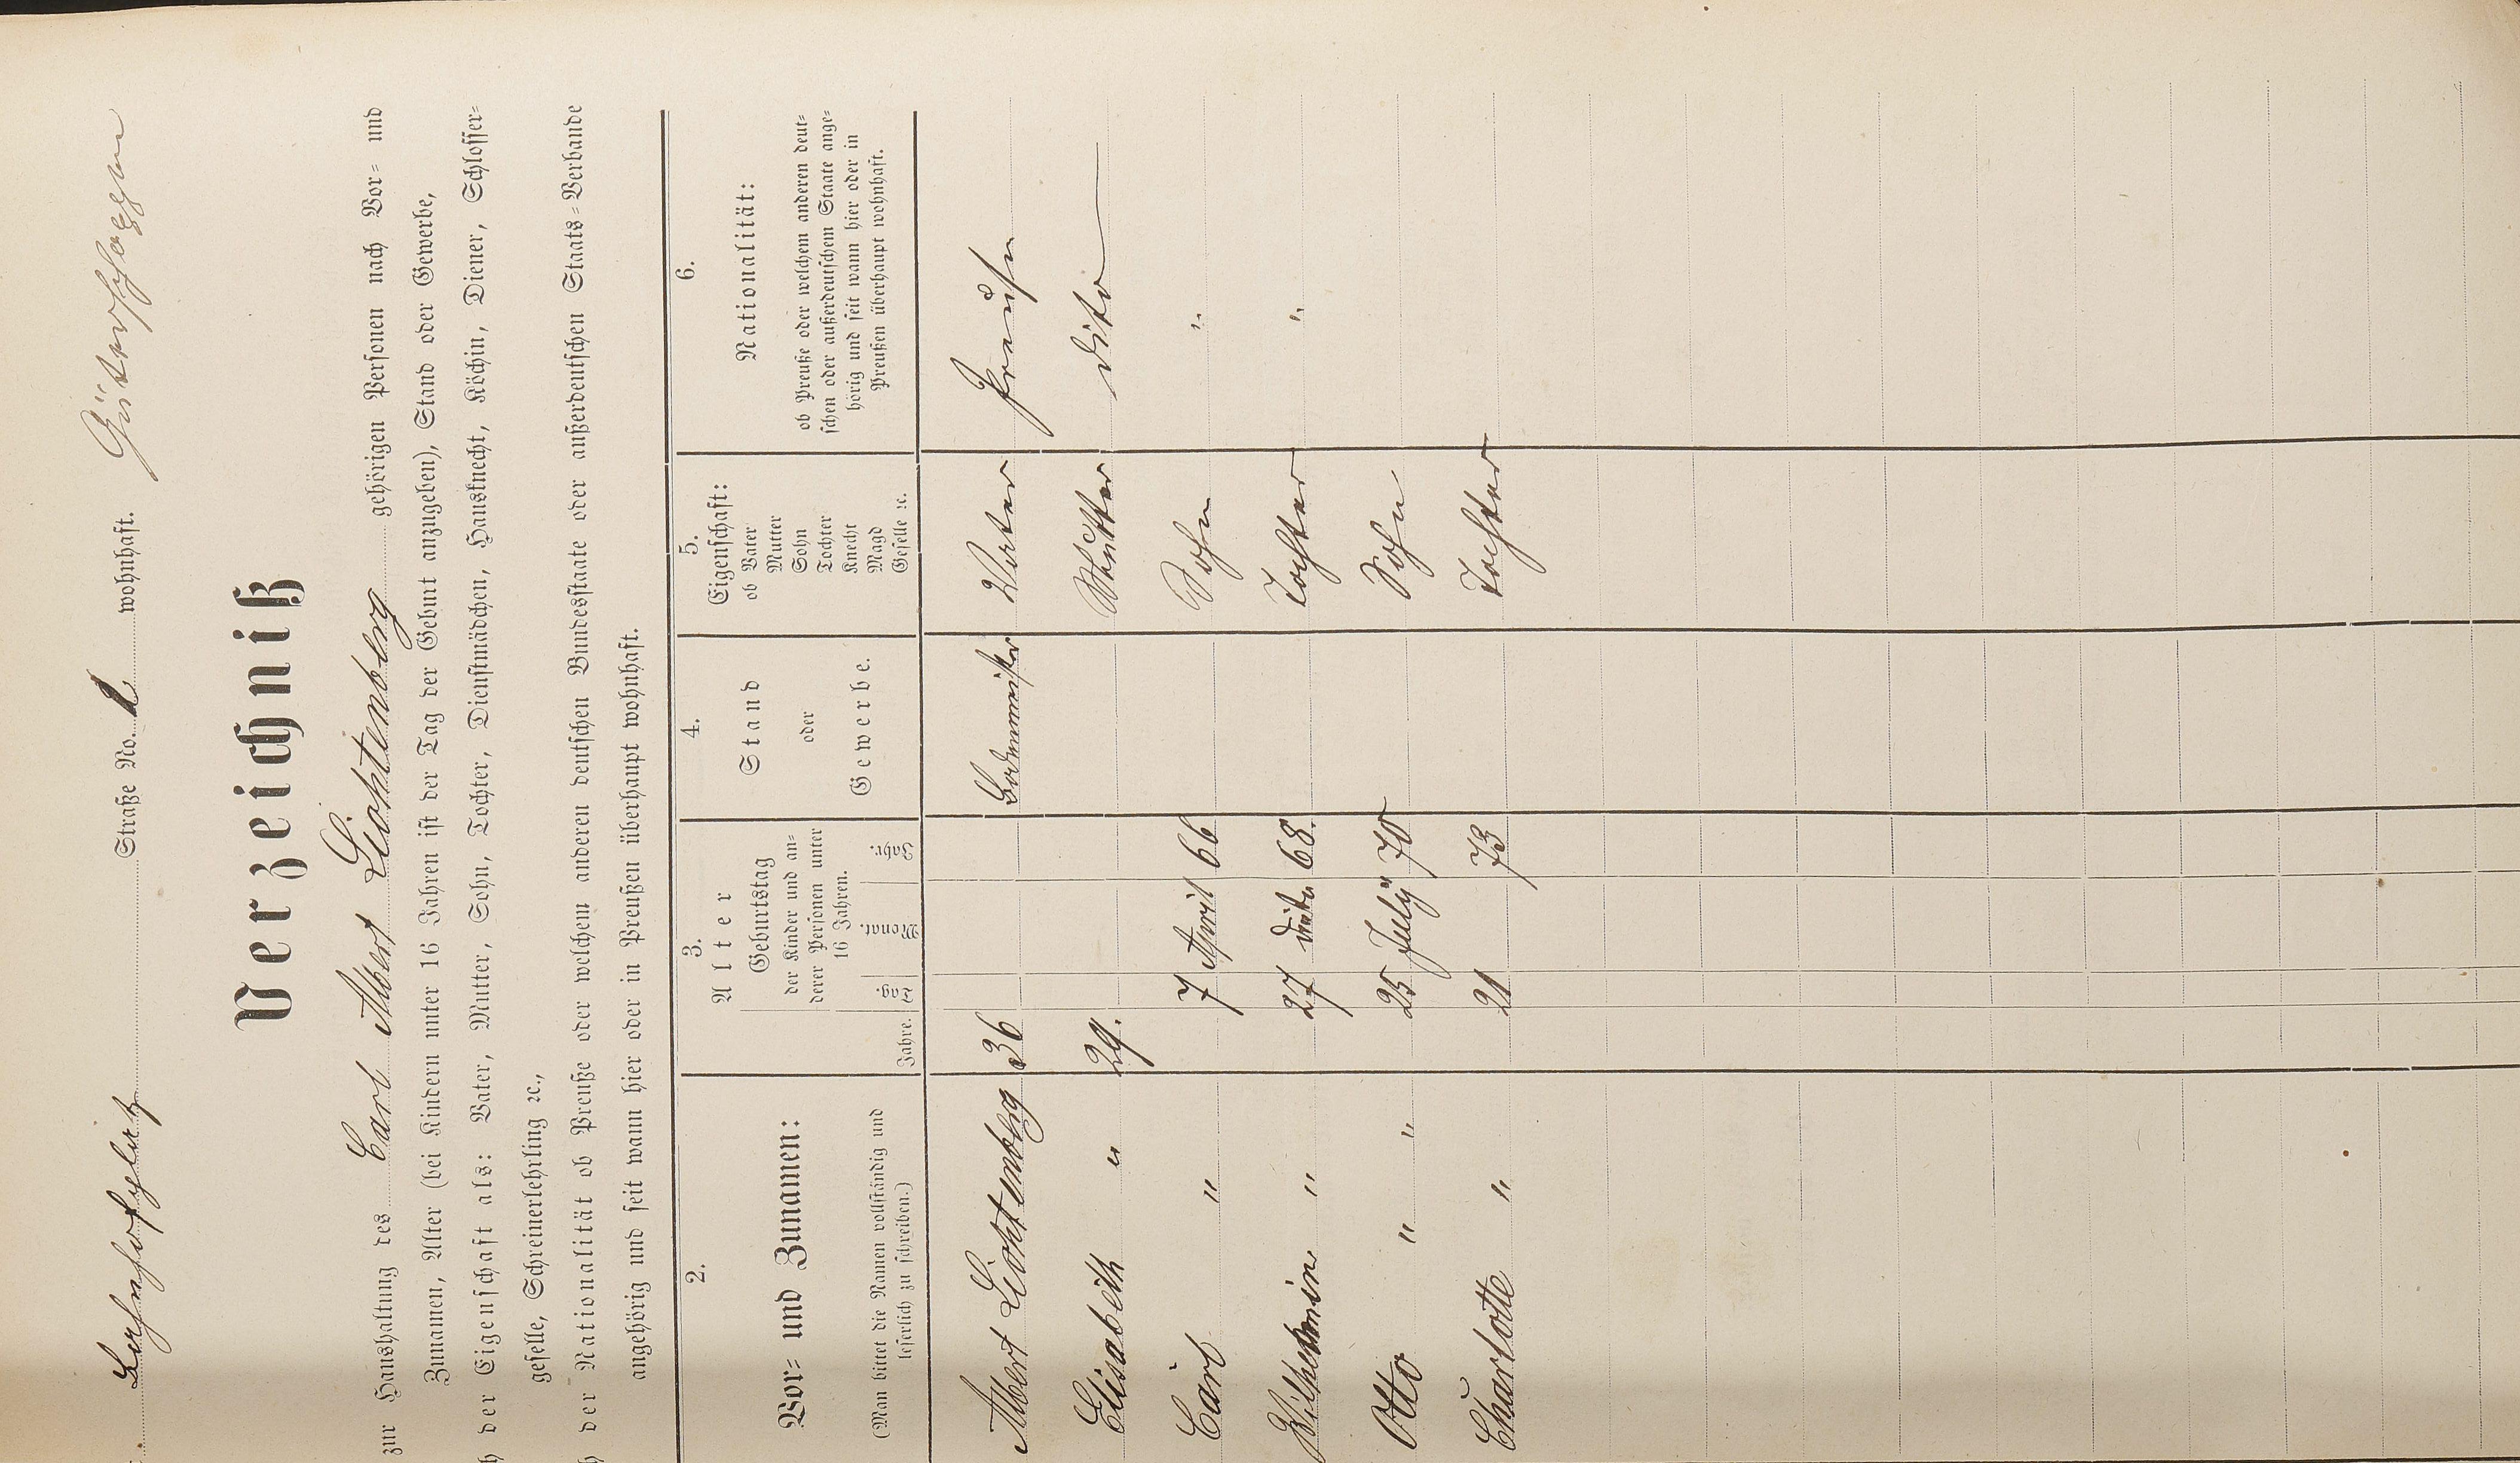 Straße No. 2 wohnhaft.
Verzeichniß
zur Haushaltung des Carl Albert Lichtenberg gehörigen Personen nach Vor- und
Zunamen, Alter (bei Kindern unter 16 Jahren ist der Tag der Geburt anzugeben), Stand oder Gewerbe,
der Eigenschaft als: Vater, Mutter, Sohn, Tochter, Dienstmädchen, Hausknecht, Köchin, Diener, Schlosser-
geselle, Schreinerlehrling ꝛc.,
der Nationalität ob Preuße oder welchem anderen deutschen Bundesstaate oder außerdeutschen Staats-Verbande
angehörig und seit wann hier oder in Preußen überhaupt wohnhaft.
2.
Vor- und Zunamen:
(Man bittet die Namen vollständig und
leserlich zu schreiben.)
3.
Alter
Geburtstag
der Kinder und an-
derer Personen unter
16 Jahren.
Jahre. Tag. Monat. Jahr.
4.
Stand
oder
Gewerbe.
5.
Eigenschaft:
ob Vater
Mutter
Sohn
Tochter
Knecht
Magd
Geselle ꝛc.
6.
Nationalität:
ob Preuße oder welchem anderen deut-
schen oder außerdeutschem Staate ange-
hörig und seit wann hier oder in
Preußen überhaupt wohnhaft.
Albert Lichtenberg 36 Bodenmeister Vater Preuße
Elisabeth " 29. Mutter dito
Carl " 7 April 66 Sohn "
Wilhelmine " 27 dito 68. Tochter "
Otto " " 25 July 70 Sohn
Charlotte " 21 " 73 Tochter